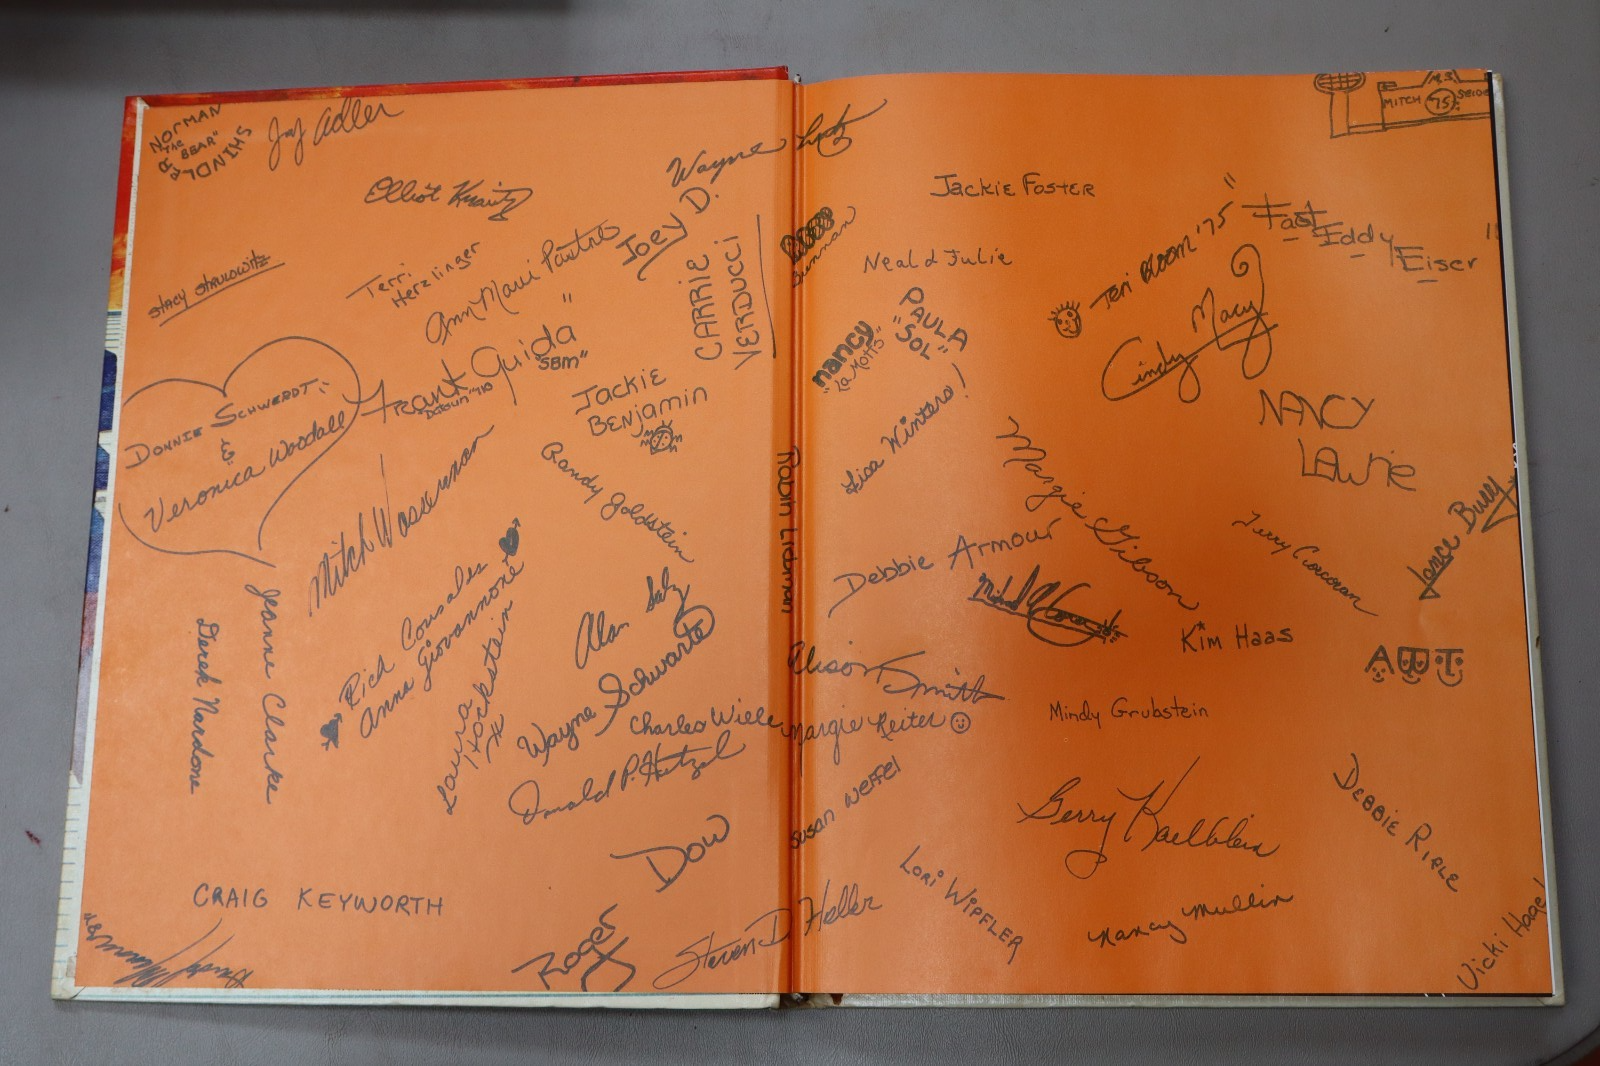 NORMAN
THE
"BEAR"
SHINDLER
Jay Adler
Elliot
Wayne
Stacy
Terri
Herzlinger
Ann Marie
Joey D.
CARRIE
VERDUCCI
Frank Guida
"SBM"
Datsun "710"
JACKIE
BENJAMIN
DONNIE SCHWERDT
&
Veronica Woodall
Mitch Wasserman
Randy Goldstein
Robin Lidsman
Jeanne Clarke
Derek Nardone
Rich Consales
Anna Giovannone
Laura
Hockstein
Alan
Wayne Schwartz
Charles Wille
Donald P. Hetzel
DOW
CRAIG KEYWORTH
Roger
Steven D. Heller
MITCH 75
JACKIE FOSTER
Neal & Julie
Teri Bloom '75
"Fast
Eddy
Eiser"
Cindy Macy
PAULA
"SOL"
nancy
"La Motts"
Lisa Winters!
NANCY
LAWRIE
Margie Gibson
Lance Bully
Terry Corcoran
Debbie Armour
Kim Haas
ART
Alison Smith
Margie Reiter
Mindy Grubstein
Susan Weffel
Gerry Kaelblein
DEBBIE RIPLE
LORI WIPFLER
Nancy Mullin
Vicki Hagel